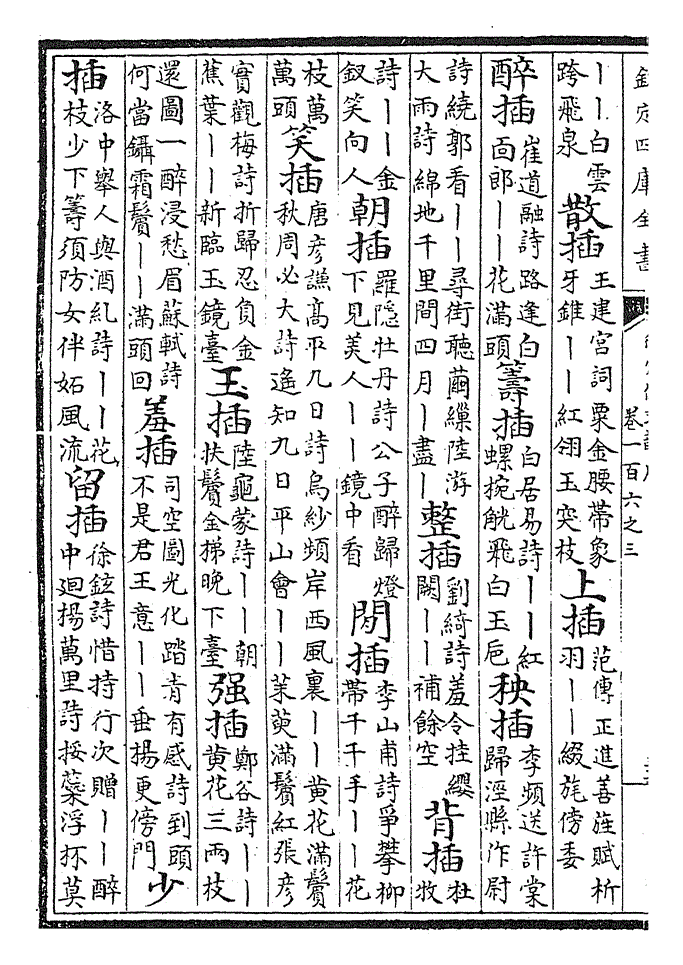 欽定四庫全書
卷一百六之三
丨丨白雲跨飛泉 散插 王建宮詞粟金腰帶象牙錐丨丨紅翎玉突枝 上插 范傳正進善旌賦析羽丨丨綴旄傍委
醉插 崔道融詩路逢白面郎丨丨花滿頭 籌插 白居易詩丨丨紅螺椀觥飛白玉巵 秧插 李頻送許棠歸涇縣作尉
詩繞郭看丨丨尋街聽繭繅陸游大雨詩綿地千里間四月丨盡丨 整插 劉綺詩羞令挂纓闕丨丨補餘空 背插 杜牧
詩丨丨金釵笑向人 朝插 羅隱牡丹詩公子醉歸燈下見美人丨丨鏡中看 閒插 李山甫詩爭攀柳帶千千手丨丨花
枝萬萬頭 笑插 唐彥謙高平九日詩烏紗頻岸西風裏丨丨黃花滿鬢秋周必大詩遙知九日平山會丨丨茱萸滿鬢紅張彥
實觀梅詩折歸忍負金蕉葉丨丨新臨玉鏡臺 玉插 陸龜蒙詩丨丨朝扶鬢金梯晚下臺 强插 鄭谷詩丨丨黃花三兩枝
還圖一醉浸愁眉蘇軾詩何當鑷霜鬢丨丨滿頭回 羞插 司空圖光化踏青有感詩到頭不是君王意丨丨垂揚更傍門 少
插 洛中舉人與酒糺詩丨丨花枝少下籌須防女伴妬風流 留插 徐鉉詩惜持行次贈丨丨醉中迴揚萬里詩挼蘂浮杯莫